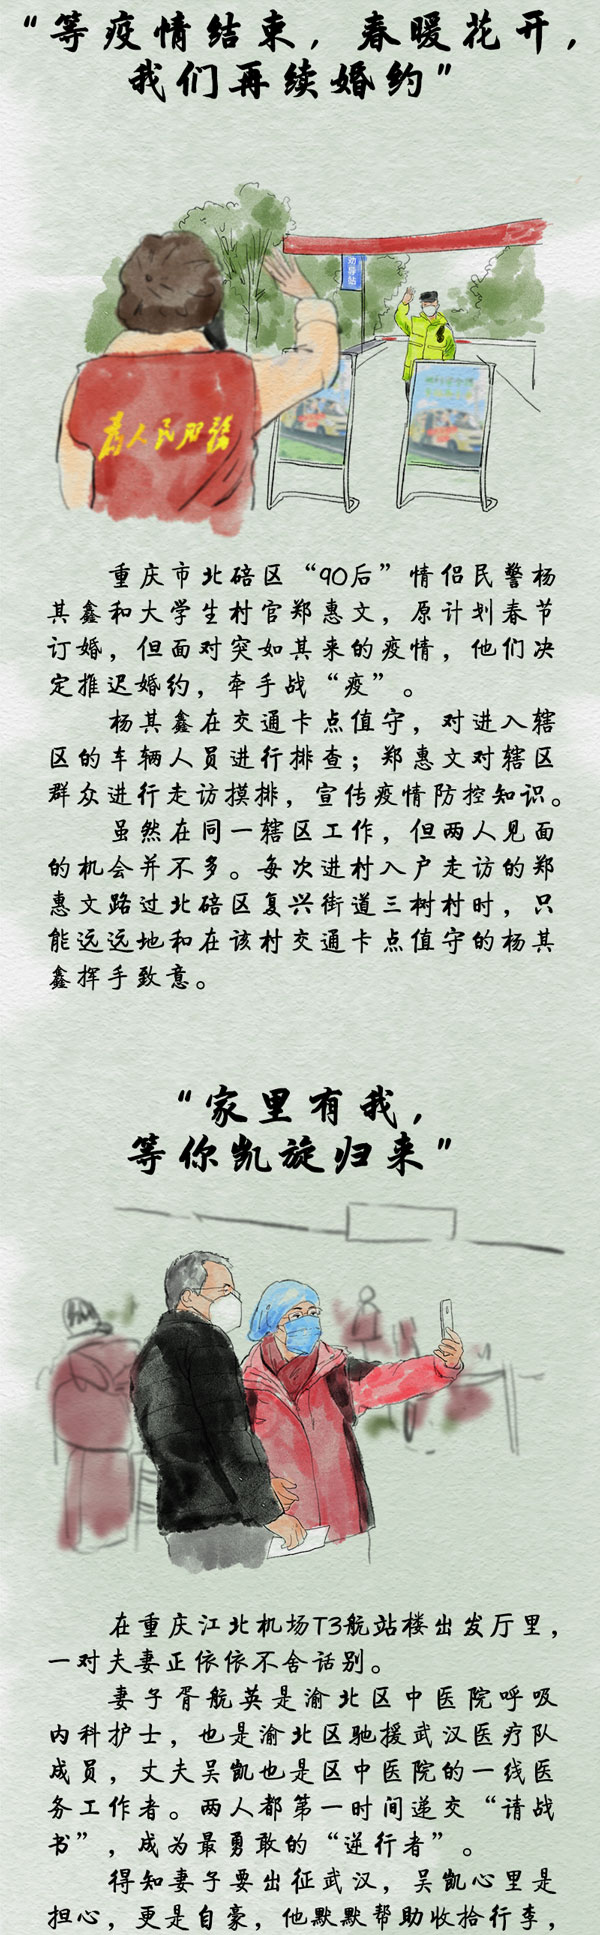 “等疫情结束，春暖花开，
我们再续婚约”
劝导站
为人民服务
重庆市北碚区“90后”情侣民警杨
其鑫和大学生村官郑惠文，原计划春节
订婚，但面对突如其来的疫情，他们决
定推迟婚约，牵手战“疫”。
杨其鑫在交通卡点值守，对进入辖
区的车辆人员进行排查；郑惠文对辖区
群众进行走访摸排，宣传疫情防控知识。
虽然在同一辖区工作，但两人见面
的机会并不多。每次进村入户走访的郑
惠文路过北碚区复兴街道三树村时，只
能远远地和在该村交通卡点值守的杨其
鑫挥手致意。
“家里有我，
等你凯旋归来”
在重庆江北机场T3航站楼出发厅里，
一对夫妻正依依不舍话别。
妻子胥航英是渝北区中医院呼吸
内科护士，也是渝北区驰援武汉医疗队
成员，丈夫吴凯也是区中医院的一线医
务工作者。两人都第一时间递交“请战
书”，成为最勇敢的“逆行者”。
得知妻子要出征武汉，吴凯心里是
担心，更是自豪，他默默帮助收拾行李，